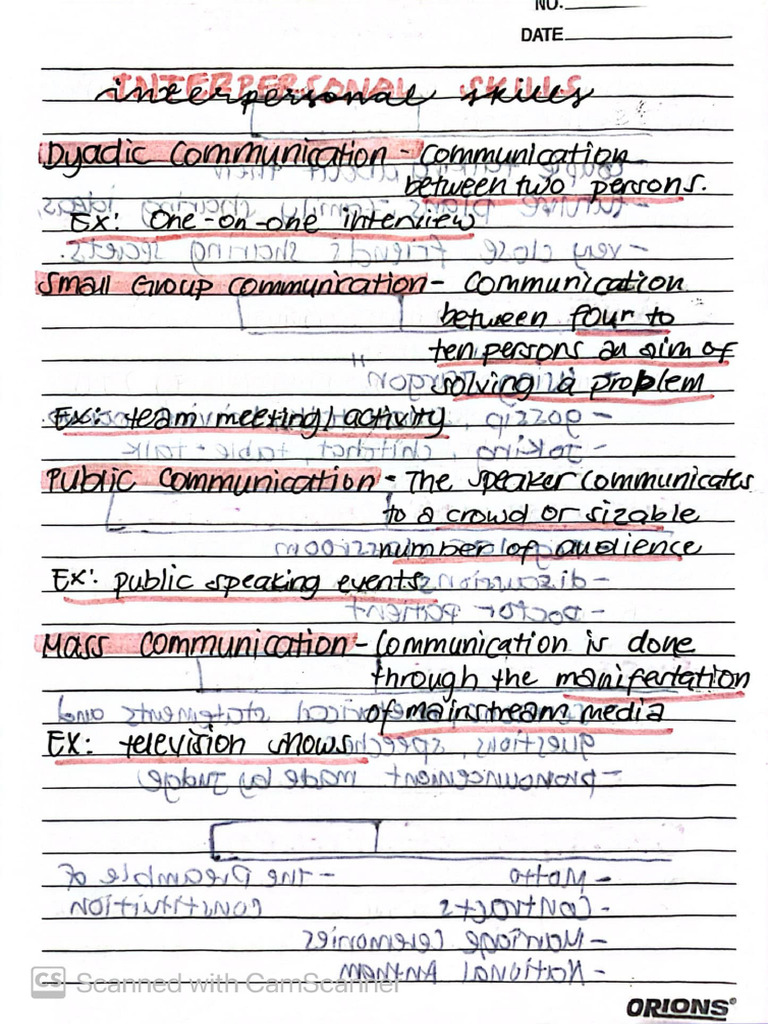 NO.
DATE
INTERPERSONAL SKILLS
interpersonal skills
Dyadic Communication - Communication
between two persons.
Ex: One-on-one interview
Small Group Communication - Communication
between four to
ten persons an aim of
solving a problem
Ex: team meeting/activity
Public Communication - The speaker communicates
to a crowd or sizable
number of audience
Ex: public speaking events
Mass Communication - Communication is done
through the manifestation
of mainstream media
EX: television shows
CS Scanned with CamScanner
ORIONS®